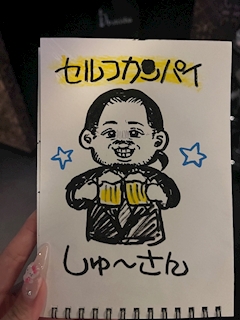 セルフカンパイ
しゅ〜さん